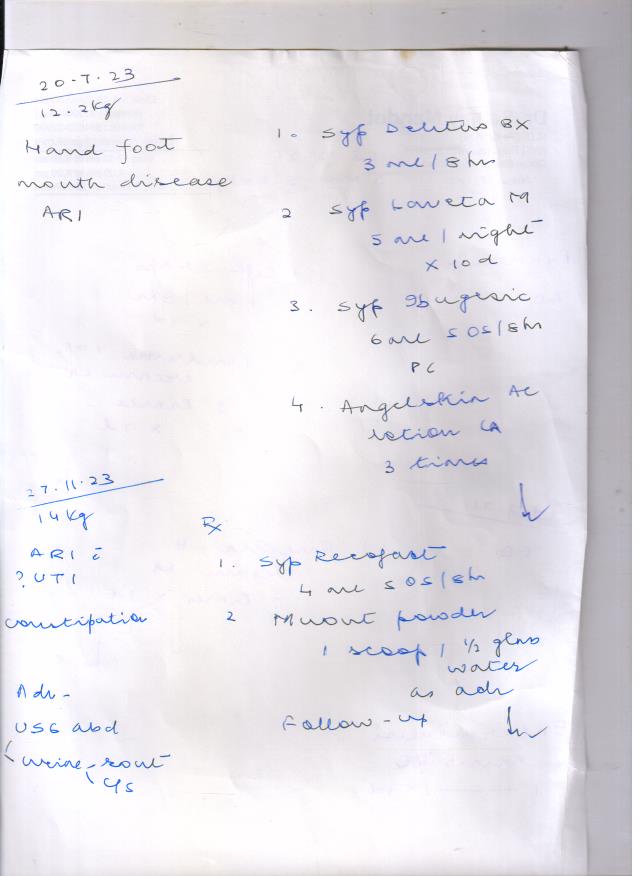 20-7.23
12.2kg
Hand foot
mouth disease
ARI
1. Syp Delitus BX
3 ml / 8 hr
2 Syp Laveta M
5 ml / night
x 10 d
3. Syp Ibugesic
6 ml SOS/8hr
PC
4. Angelskin AC
lotion LA
3 times
27.11.23
14kg
ARI c̄
? UTI
constipation
Adv -
USG abd
urine - rout
c/s
Rx
1. Syp Recofast
4 ml SOS/8hr
2 Muout powder
1 scoop / 1/2 glass
water
as adv
Follow-up